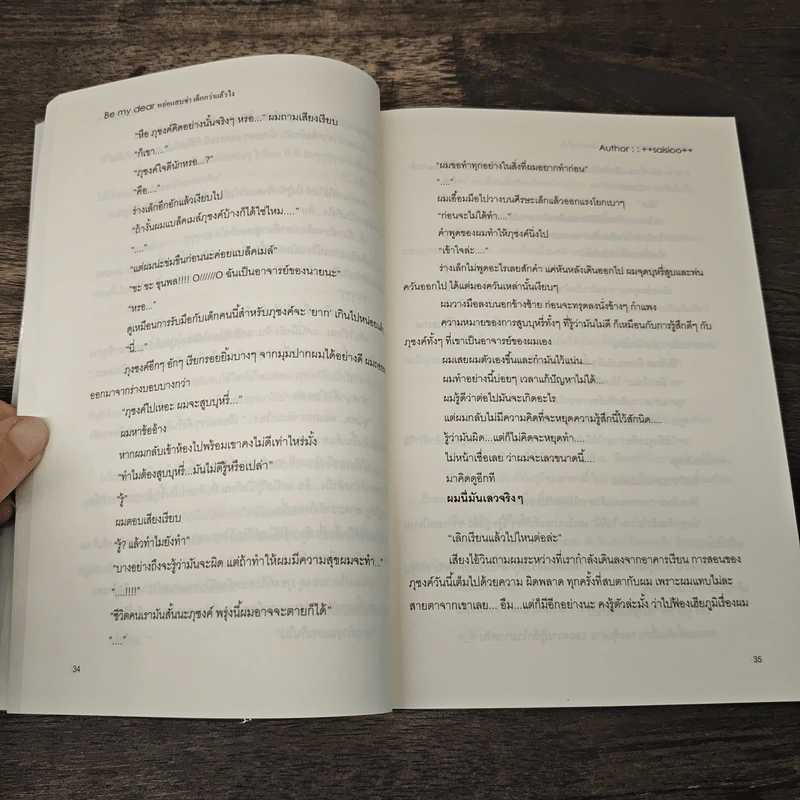 Be my dear หล่อแสบซ่า เด็กกว่าแล้วไง
"หือ ภุชงค์คิดอย่างนั้นจริงๆ หรอ..." ผมถามเสียงเรียบ
"ก็เขา...."
"ภุชงค์ใจดีนักหรอ...?"
"คือ...."
ร่างเล็กอึกอักแล้วเงียบไป
"ถ้างั้นผมแบล็คเมล์ภุชงค์บ้างก็ได้ใช่ไหม...."
"...."
"แต่ผมน่ะข่มขืนก่อนนะค่อยแบล็คเมล์"
"ขะ ขะ ขุนพล!!!! O//////O ฉันเป็นอาจารย์ของนายนะ"
"หรอ..."
ดูเหมือนการรับมือกับเด็กคนนี้สำหรับภุชงค์จะ 'ยาก' เกินไปหน่อยแล้ว
"นี่...."
ภุชงค์อึกๆ อักๆ เรียกรอยยิ้มบางๆ จากมุมปากผมได้อย่างดี ผมถอย
ออกมาจากร่างบอบบางกว่า
"ภุชงค์ไปเหอะ ผมจะสูบบุหรี่..."
ผมหาข้ออ้าง
หากผมกลับเข้าห้องไปพร้อมเขาคงไม่ดีเท่าไหร่มั้ง
"ทำไมต้องสูบบุหรี่...มันไม่ดีรู้หรือเปล่า"
"รู้"
ผมตอบเสียงเรียบ
"รู้? แล้วทำไมยังทำ"
"บางอย่างถึงจะรู้ว่ามันจะผิด แต่ถ้าทำให้ผมมีความสุขผมจะทำ..."
"....!!!!"
"ชีวิตคนเรามันสั้นนะภุชงค์ พรุ่งนี้ผมอาจจะตายก็ได้"
"...."
34
Author : : ++saisioo++
"ผมขอทำทุกอย่างในสิ่งที่ผมอยากทำก่อน"
"...."
ผมเอื้อมมือไปวางบนศีรษะเล็กแล้วออกแรงโยกเบาๆ
"ก่อนจะไม่ได้ทำ...."
คำพูดของผมทำให้ภุชงค์นิ่งไป
"เข้าใจล่ะ...."
ร่างเล็กไม่พูดอะไรเลยสักคำ แค่หันหลังเดินออกไป ผมจุดบุหรี่สูบและพ่น
ควันออกไป ได้แต่มองควันเหล่านั้นเงียบๆ
ผมวางมือลงบนอกข้างซ้าย ก่อนจะทรุดลงนั่งข้างๆ กำแพง
ความหมายของการสูบบุหรี่ทั้งๆ ที่รู้ว่ามันไม่ดี ก็เหมือนกับการรู้สึกดีๆ กับ
ภุชงค์ทั้งๆ ที่เขาเป็นอาจารย์ของผมเอง
ผมเสยผมตัวเองขึ้นและกำมันไว้แน่น....
ผมทำอย่างนี้บ่อยๆ เวลาแก้ปัญหาไม่ได้...
ผมรู้ดีว่าต่อไปมันจะเกิดอะไร
แต่ผมกลับไม่มีความคิดที่จะหยุดความรู้สึกนี้ไว้สักนิด....
รู้ว่ามันผิด...แต่ก็ไม่คิดจะหยุดทำ....
ไม่น่าเชื่อเลย ว่าผมจะเลวขนาดนี้....
มาคิดดูอีกที
ผมนี่มันเลวจริงๆ
"เลิกเรียนแล้วไปไหนต่อล่ะ"
เสียงไอ้วินถามผมระหว่างที่เรากำลังเดินลงจากอาคารเรียน การสอนของ
ภุชงค์วันนี้เต็มไปด้วยความ ผิดพลาด ทุกครั้งที่สบตากับผม เพราะผมแทบไม่ละ
สายตาจากเขาเลย... อืม...แต่ก็มีอีกอย่างนะ คงรู้ตัวล่ะมั้ง ว่าไปฟ้องเฮียภูมิเรื่องผม
35